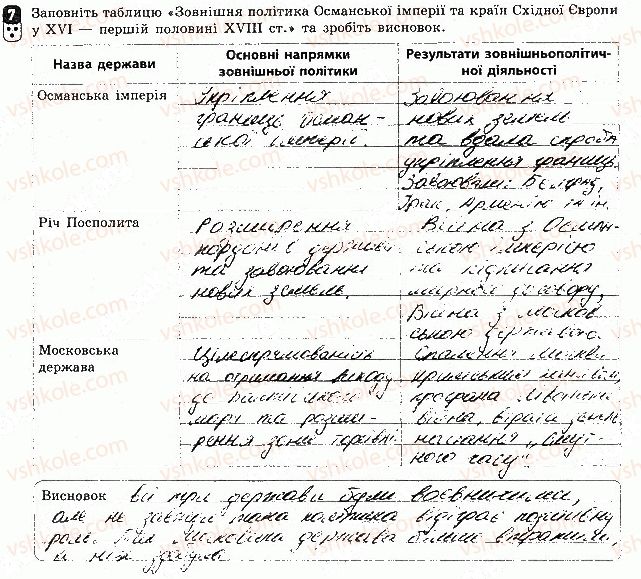 7 Заповніть таблицю «Зовнішня політика Османської імперії та країн Східної Європи
у XVI — першій половині XVIII ст.» та зробіть висновок.
Назва держави
Основні напрямки
зовнішньої політики
Результати зовнішньополітич-
ної діяльності
Османська імперія
Укріплення
границь Осман-
ської імперії.
Завоювання
нових земель
та вдала спроба
укріплення границь.
Завоювані: Белград,
Ірак, Арменію та ін.
Річ Посполита
Розширення
кордонів держави
та завоювання
нових земель.
Війна з Осман-
ською імперією
та підписання
мирного договору,
Війна з Москов-
ською державою.
Московська
держава
Цілеспрямованість
на отримання виходу
до Балтійського
моря та розши-
рення зони торгівлі
Спалення Москви
кримським
програна Лівонська
війна, втрати земель,
настання „Смут-
ного часу"
Висновок Всі три держави були воєвничими,
але не завжди така політика відіграє позитивну
роль. Так Московська держава більше втратила,
ніж здобула.
vshkole.com